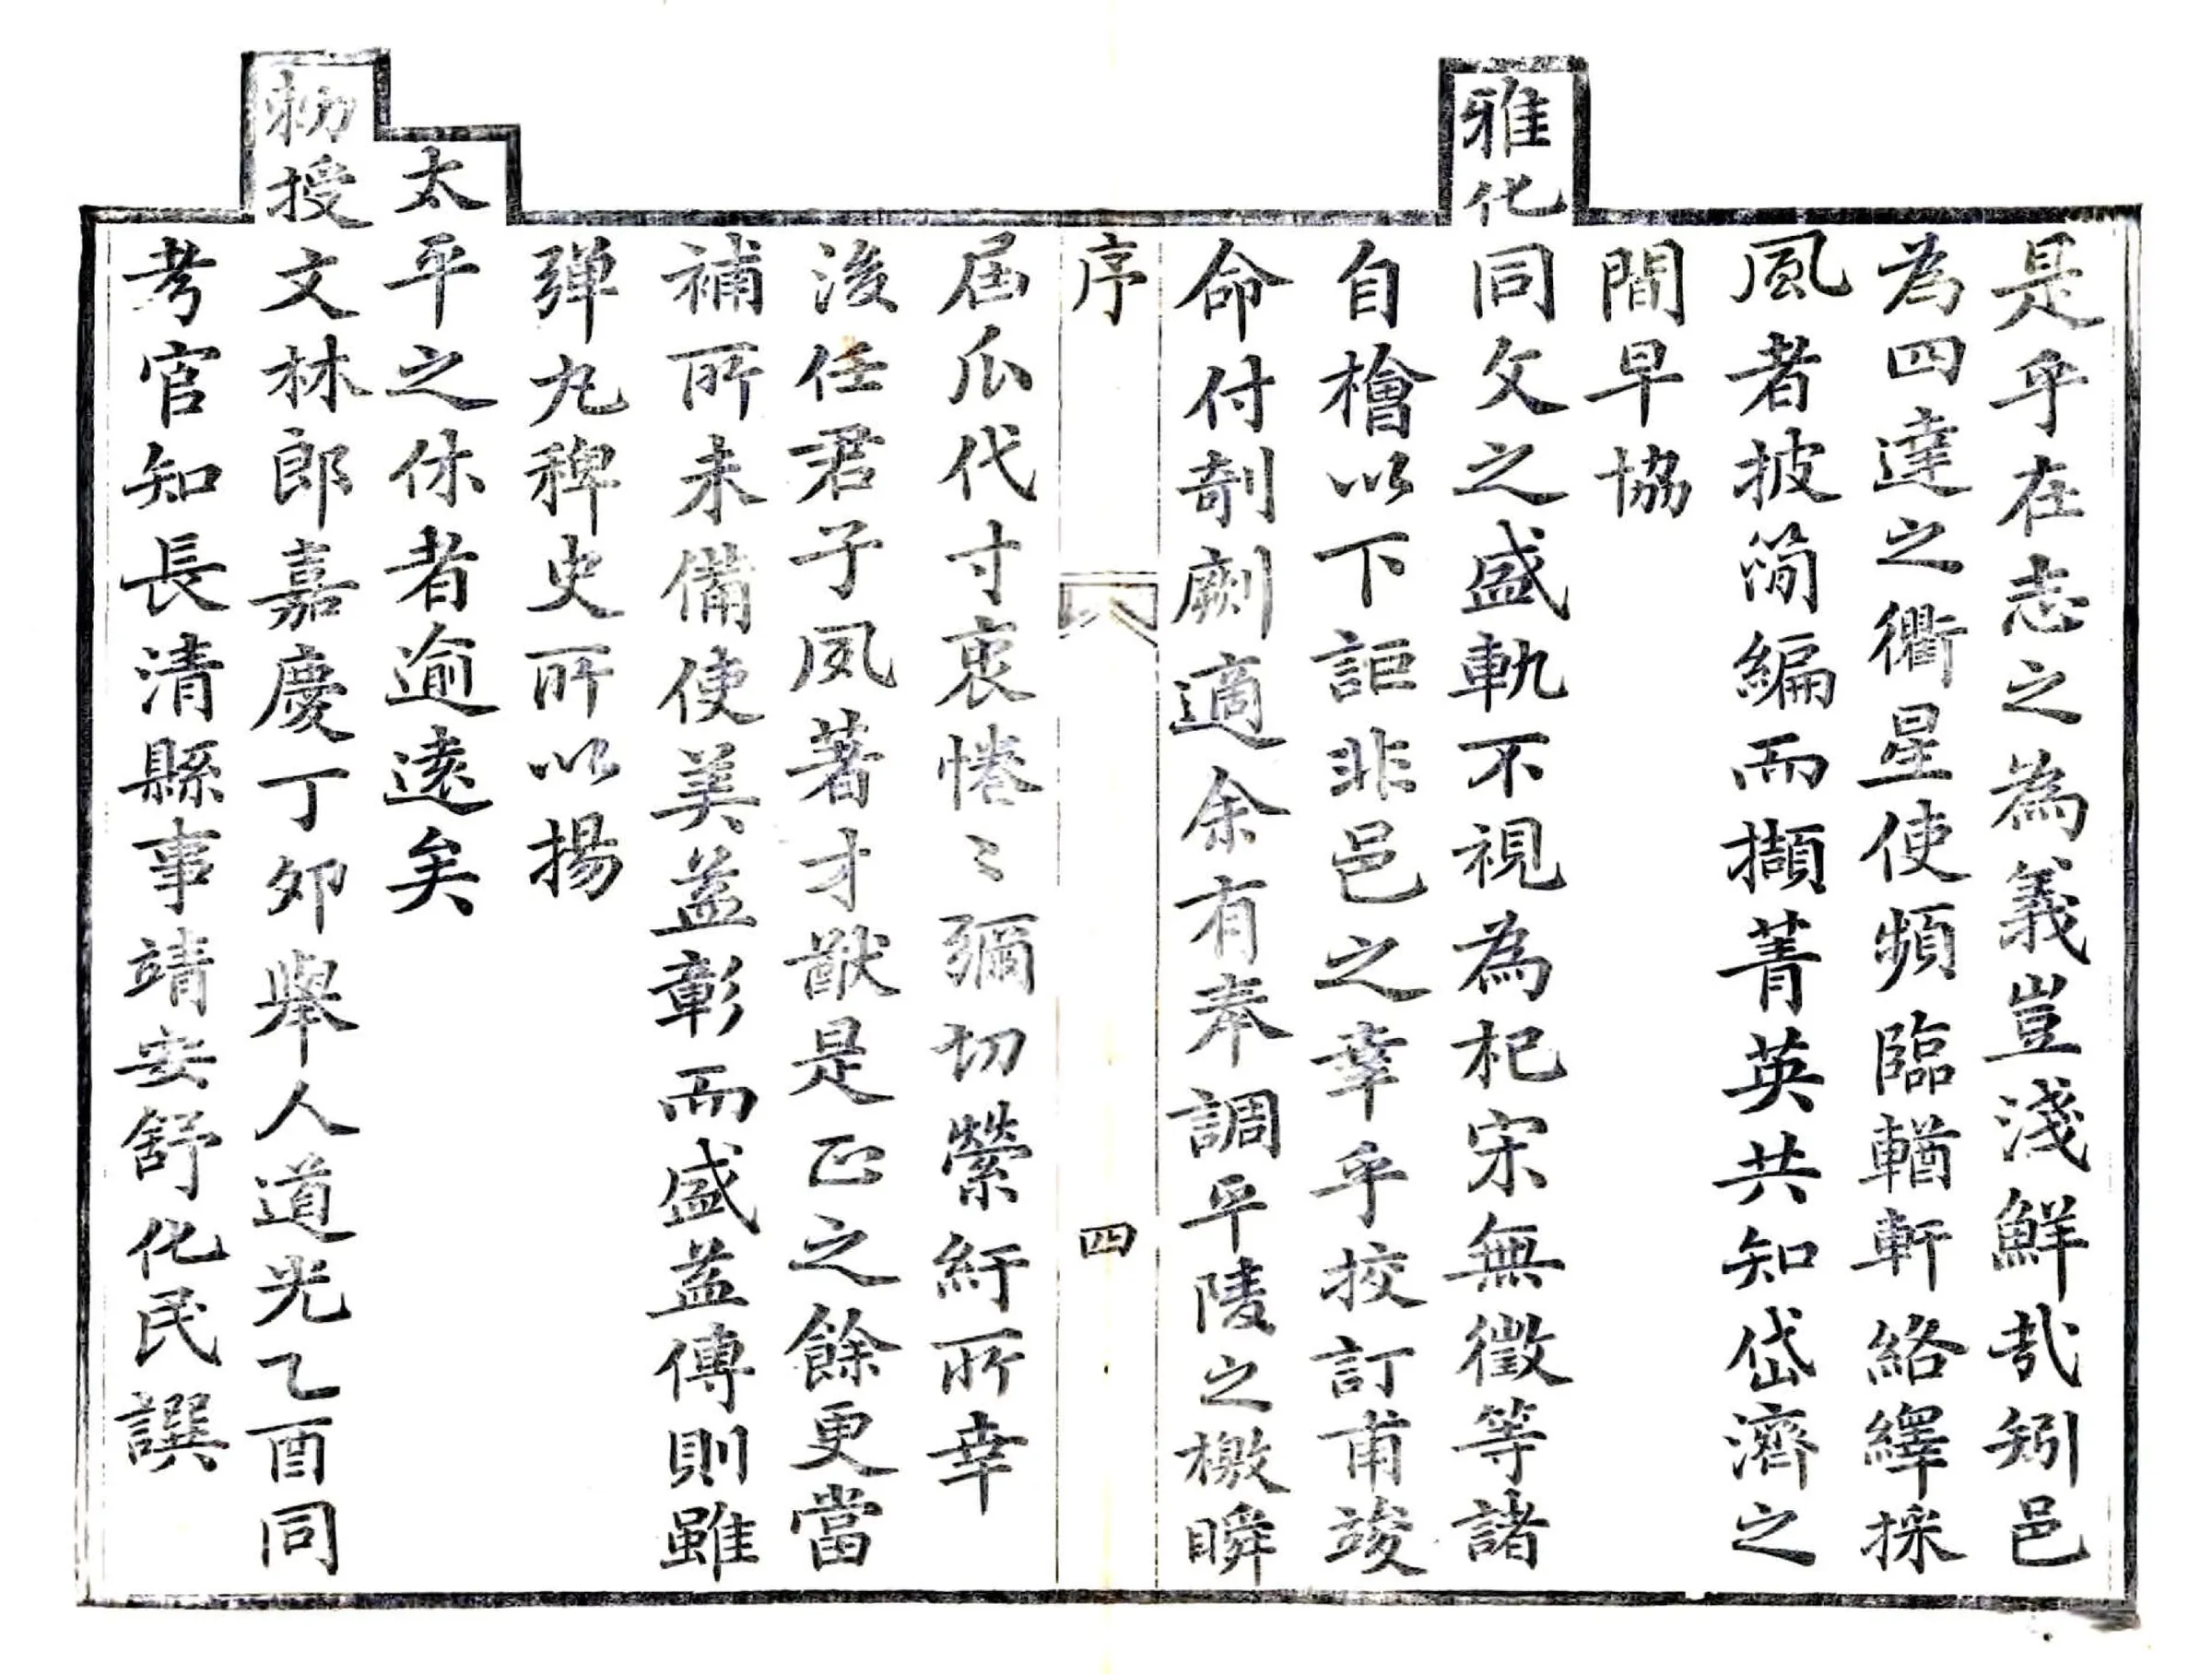 是乎在志之為義豈淺鮮哉矧邑
為四達之衢星使頻臨輶軒絡繹採
風者披簡編而擷菁英共知岱濟之
間早協
雅化同文之盛軌不視為杞宋無徵等諸
自檜以下詎非邑之幸乎挍訂甫竣
命付剞劂適余有奉調平陵之檄瞬
序
四
屆瓜代寸衷惓〻彌切縈紆所幸
後任君子夙著才猷是正之餘更當
補所未備使美益彰而盛益傳則雖
彈丸稗史所以揚
太平之休者逾遠矣
勅授文林郎嘉慶丁卯舉人道光乙酉同
考官知長清縣事靖安舒化民譔